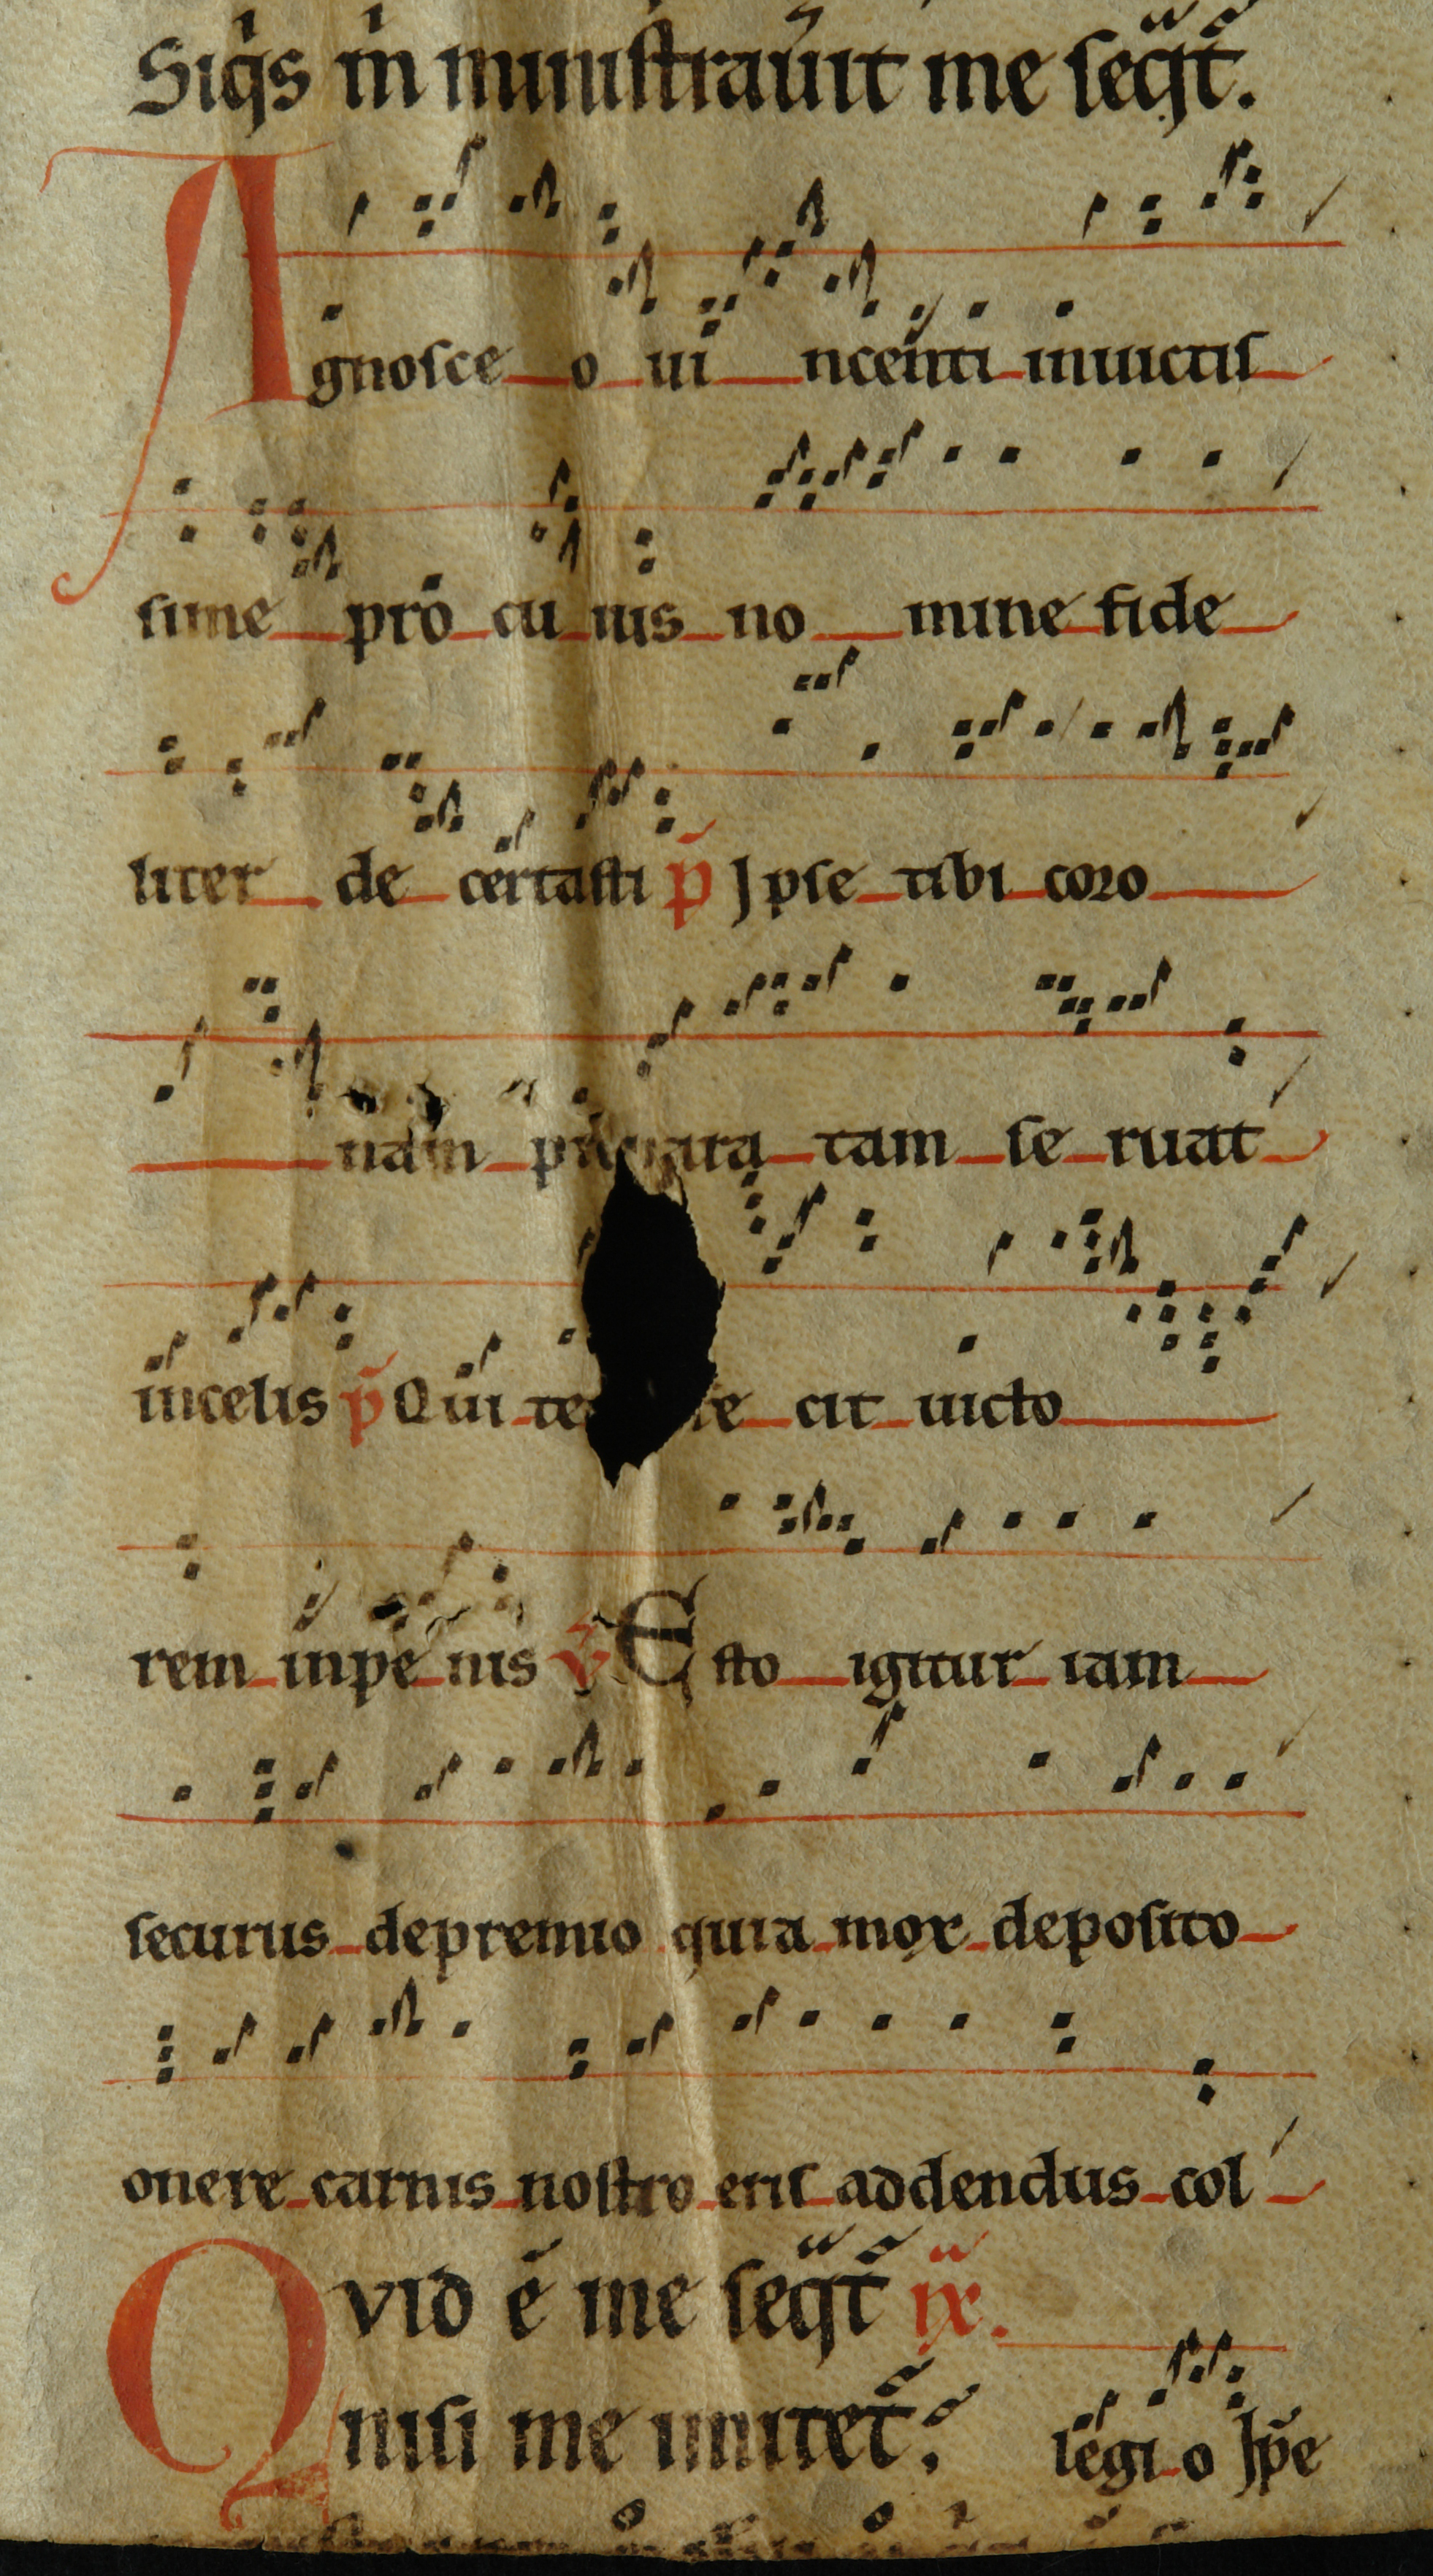 Siq̇s m̍ miniſtrau̓it me ſeq̈t̃.
Agnoſce o ui ncenti inuictiſ
ſime pro cu ius no mine fide
liter de certaſti p̃ Ipſe tibi coro
nam tam ſe ruat
incelis p̃ Qui te cit uicto
rem inpe nis ℣ Eſto igitur iam
ſecurus depremio quia mox depoſito
onere carnis noſtro eriſ addendus col
Qvid ē me ſeq̈t̃ ix.
niſi me imitet̃; legi o Ip̃e